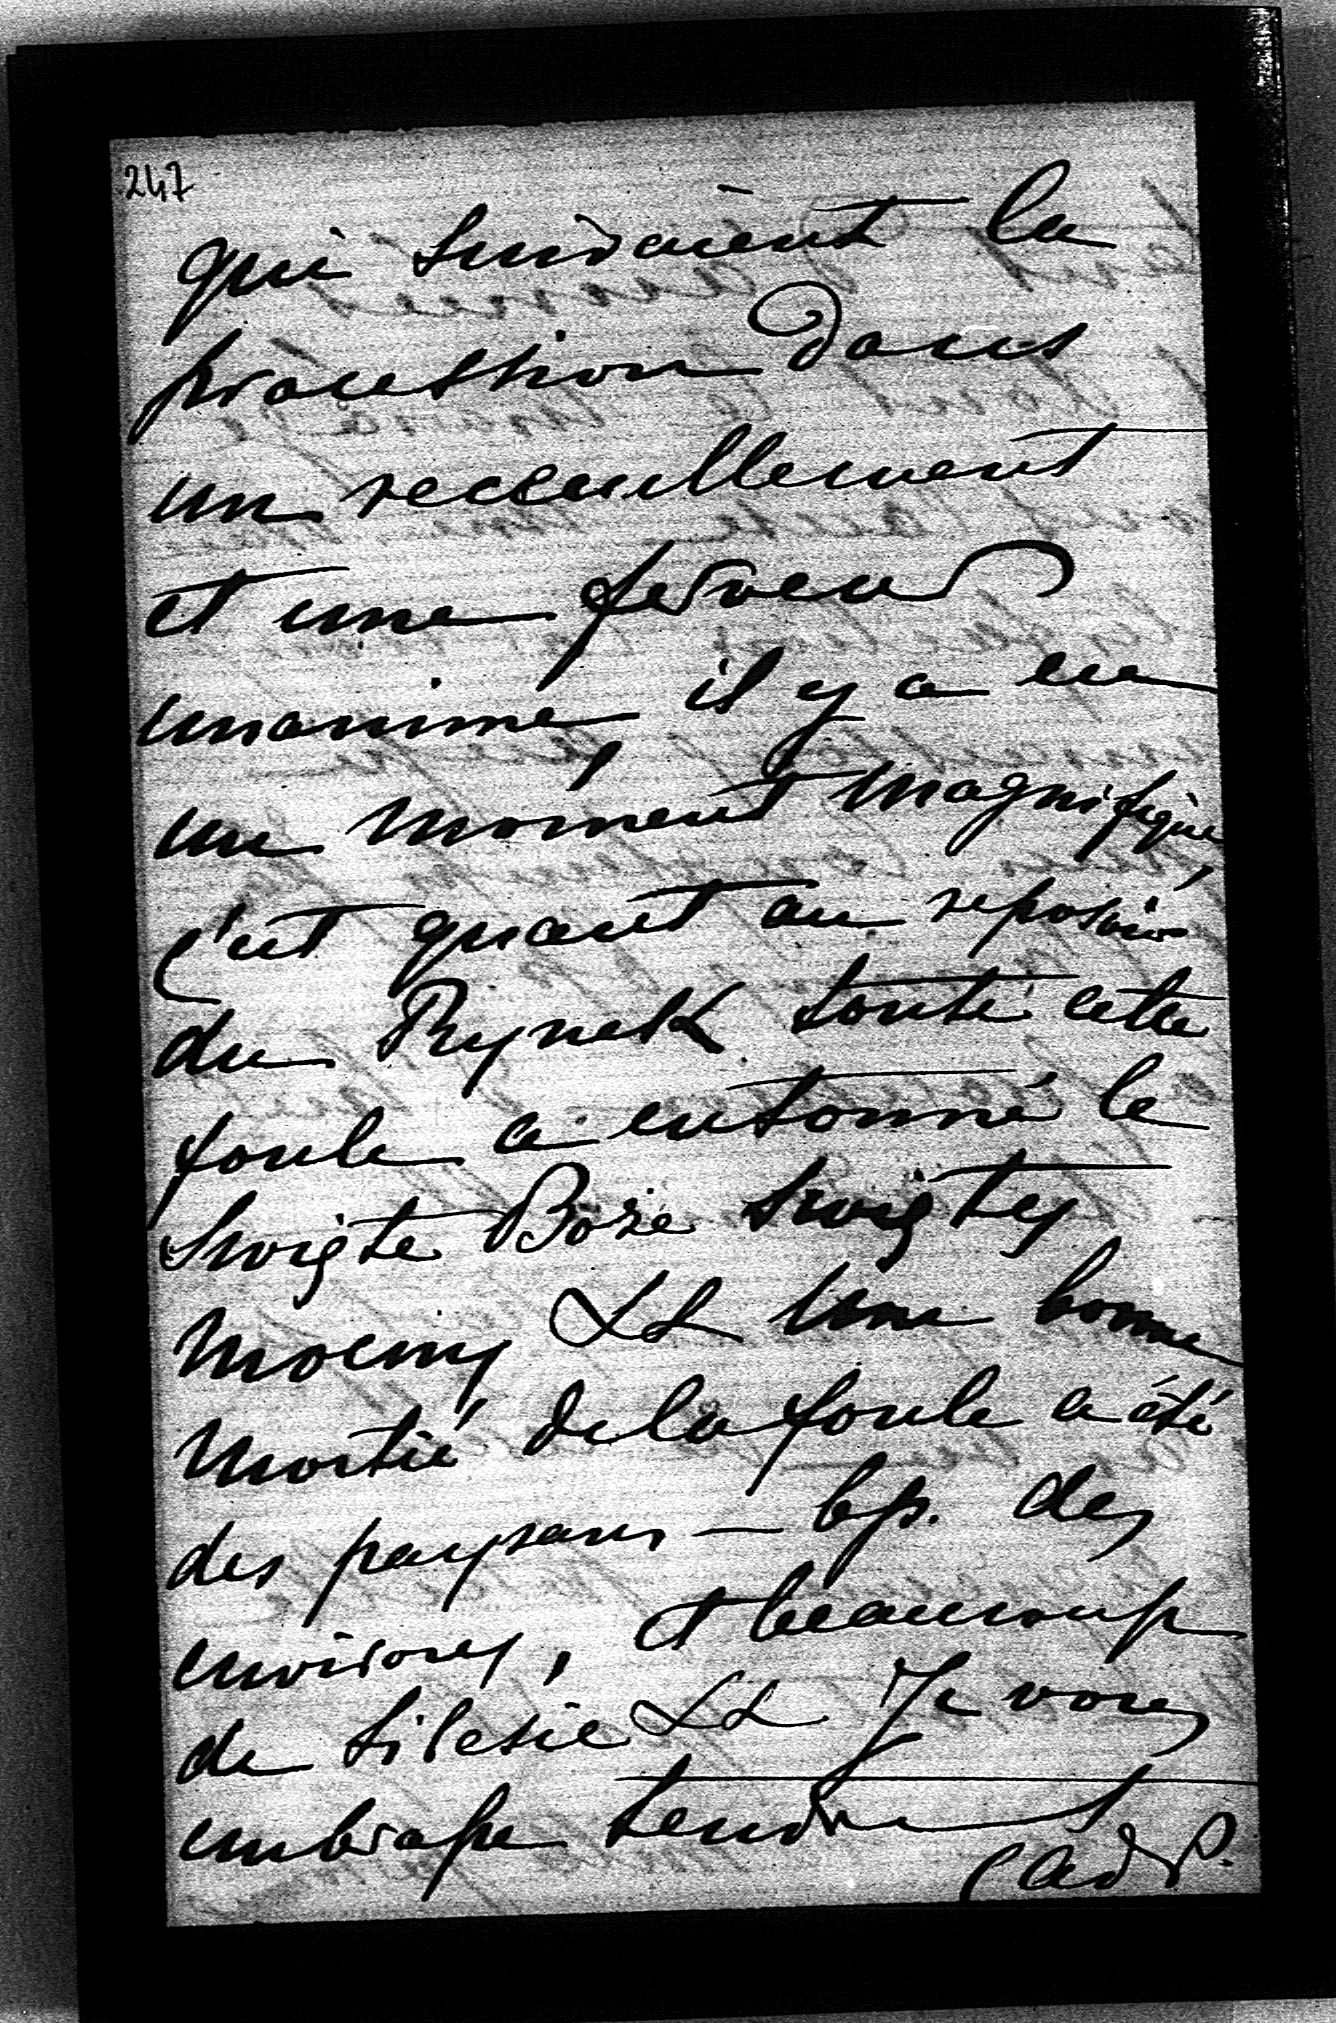 247
qui suivaient la
procession dans
un receeuillement
et une ferveur
unanime, il y a eu
un moment magnifique,
c'est quant au reposoir
du Rynek toute cette
foule a entonné le
Swięte Boże Swięty
mocny &&. Une bonne
moitié de la foule a été
des paysans — bp. des
environs, et beaucoup
de Silesie && Je vous
embrasse tendrement